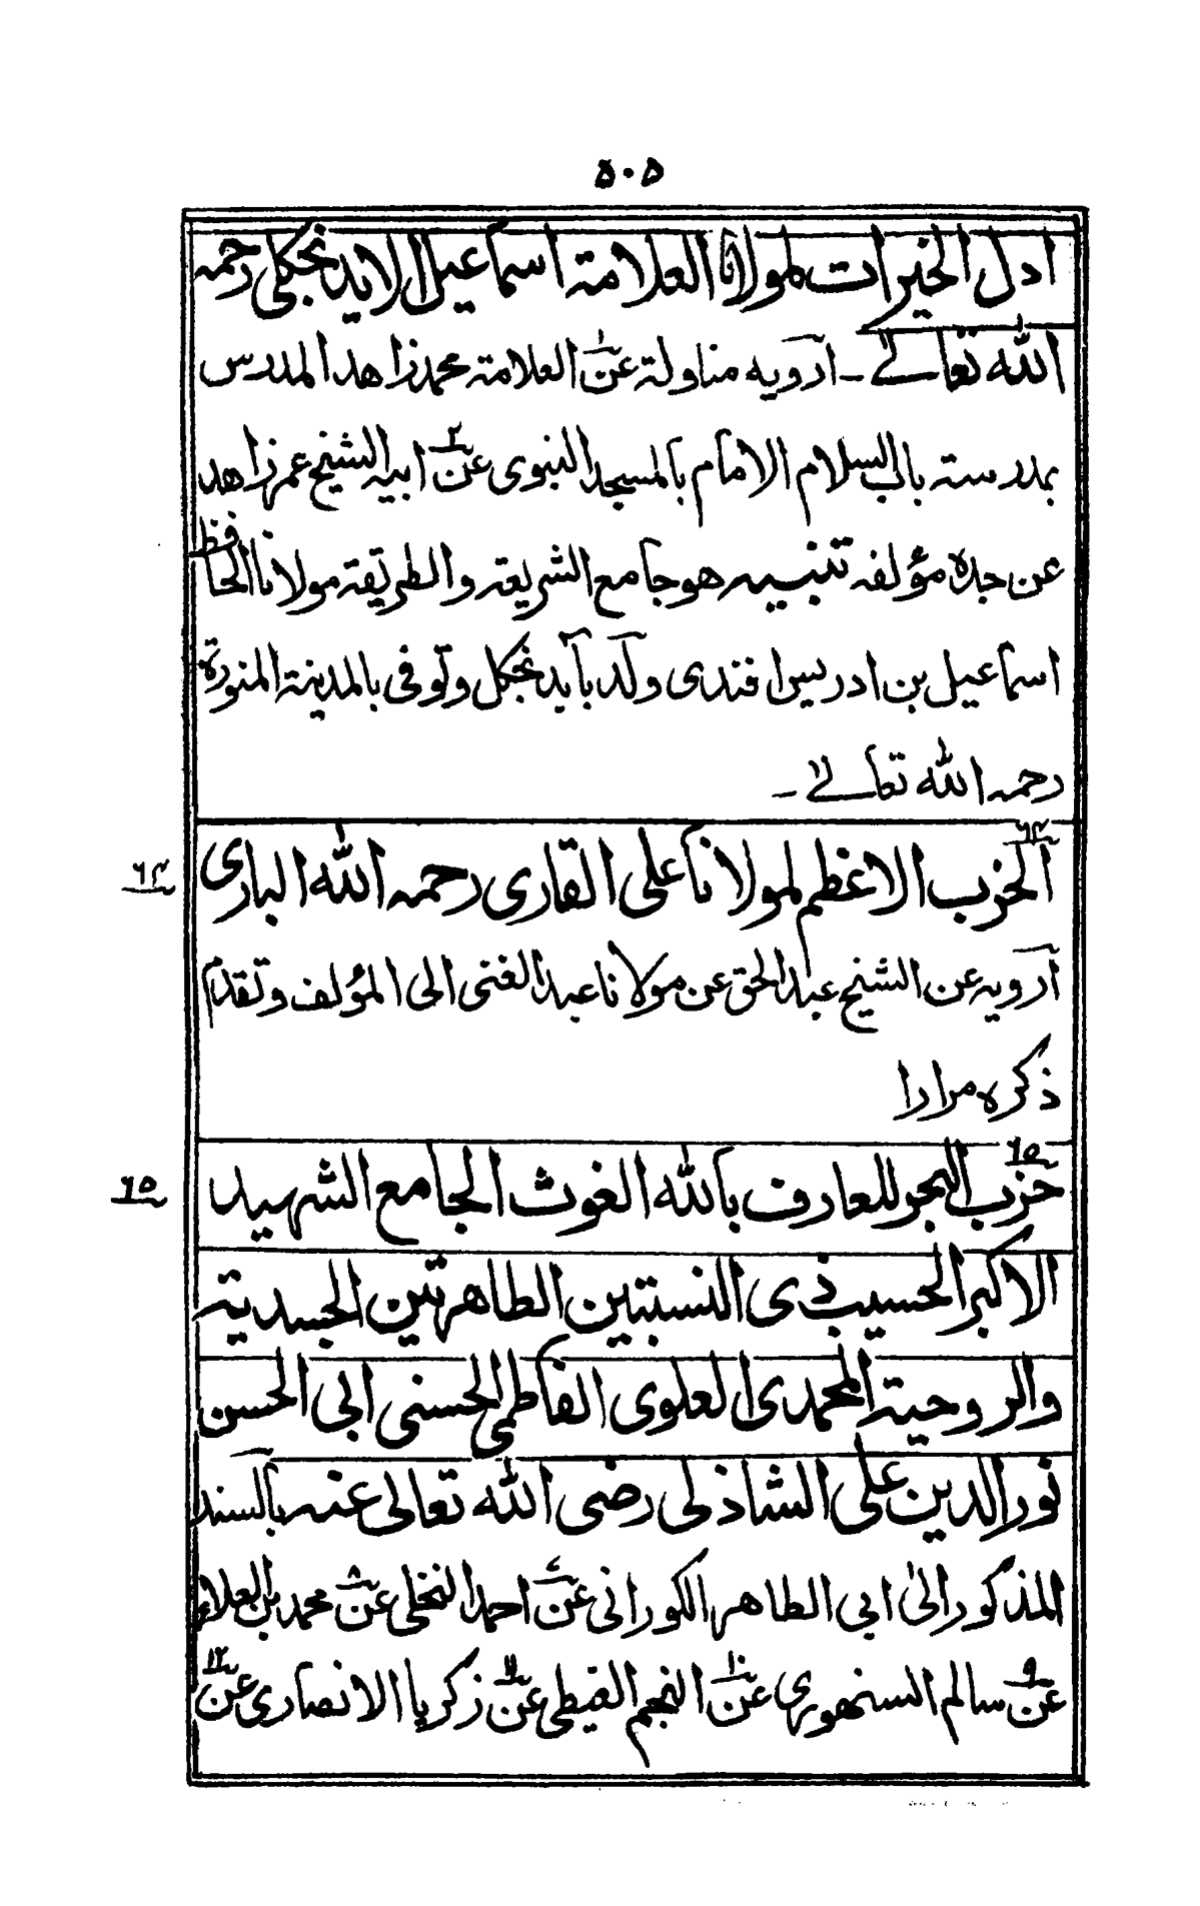 ٥٠٥
ادل الخيرات لمولانا العلامة اسماعيل الايدنجكلی رحمه
الله تعالے ـ ارويه مناولة عن۱ العلامة محمد زاهد المدرس
بمدرسة باب السلام الامام بالمسجد النبوی عن۲ ابيه الشيخ عمر زاهد
عن جده مؤلفه تنبيه هو جامع الشريعة والطريقة مولانا الحافظ
اسماعيل بن ادريس افندی ولد بآيدنجكل وتوفی بالمدينة المنورة
رحمه الله تعالے ـ
٦٤
الحزب الاعظم لمولانا علی القاری رحمه الله الباری
٦٤
ارويه عن الشيخ عبد الحق عن مولانا عبد الغنی الی المؤلف وتقدم
ذكره مرارا
٦٥
حزب البحر للعارف بالله الغوث الجامع الشهيد
٦٥
الاكبر الحسيب ذی النسبتين الطاهرتين الجسدية
والروحية المحمدی العلوی الفاطمی الحسنی ابی الحسن
نور الدين علی الشاذلی رضی الله تعالی عنه بالسند
المذكور الی ابی الطاهر الكورانی عن احمد النخلی عن۸ محمد بن العلاء
عن۹ سالم السنهوری عن۱۰ النجم الغيطی عن۱۱ زكريا الانصاری عن۱۲